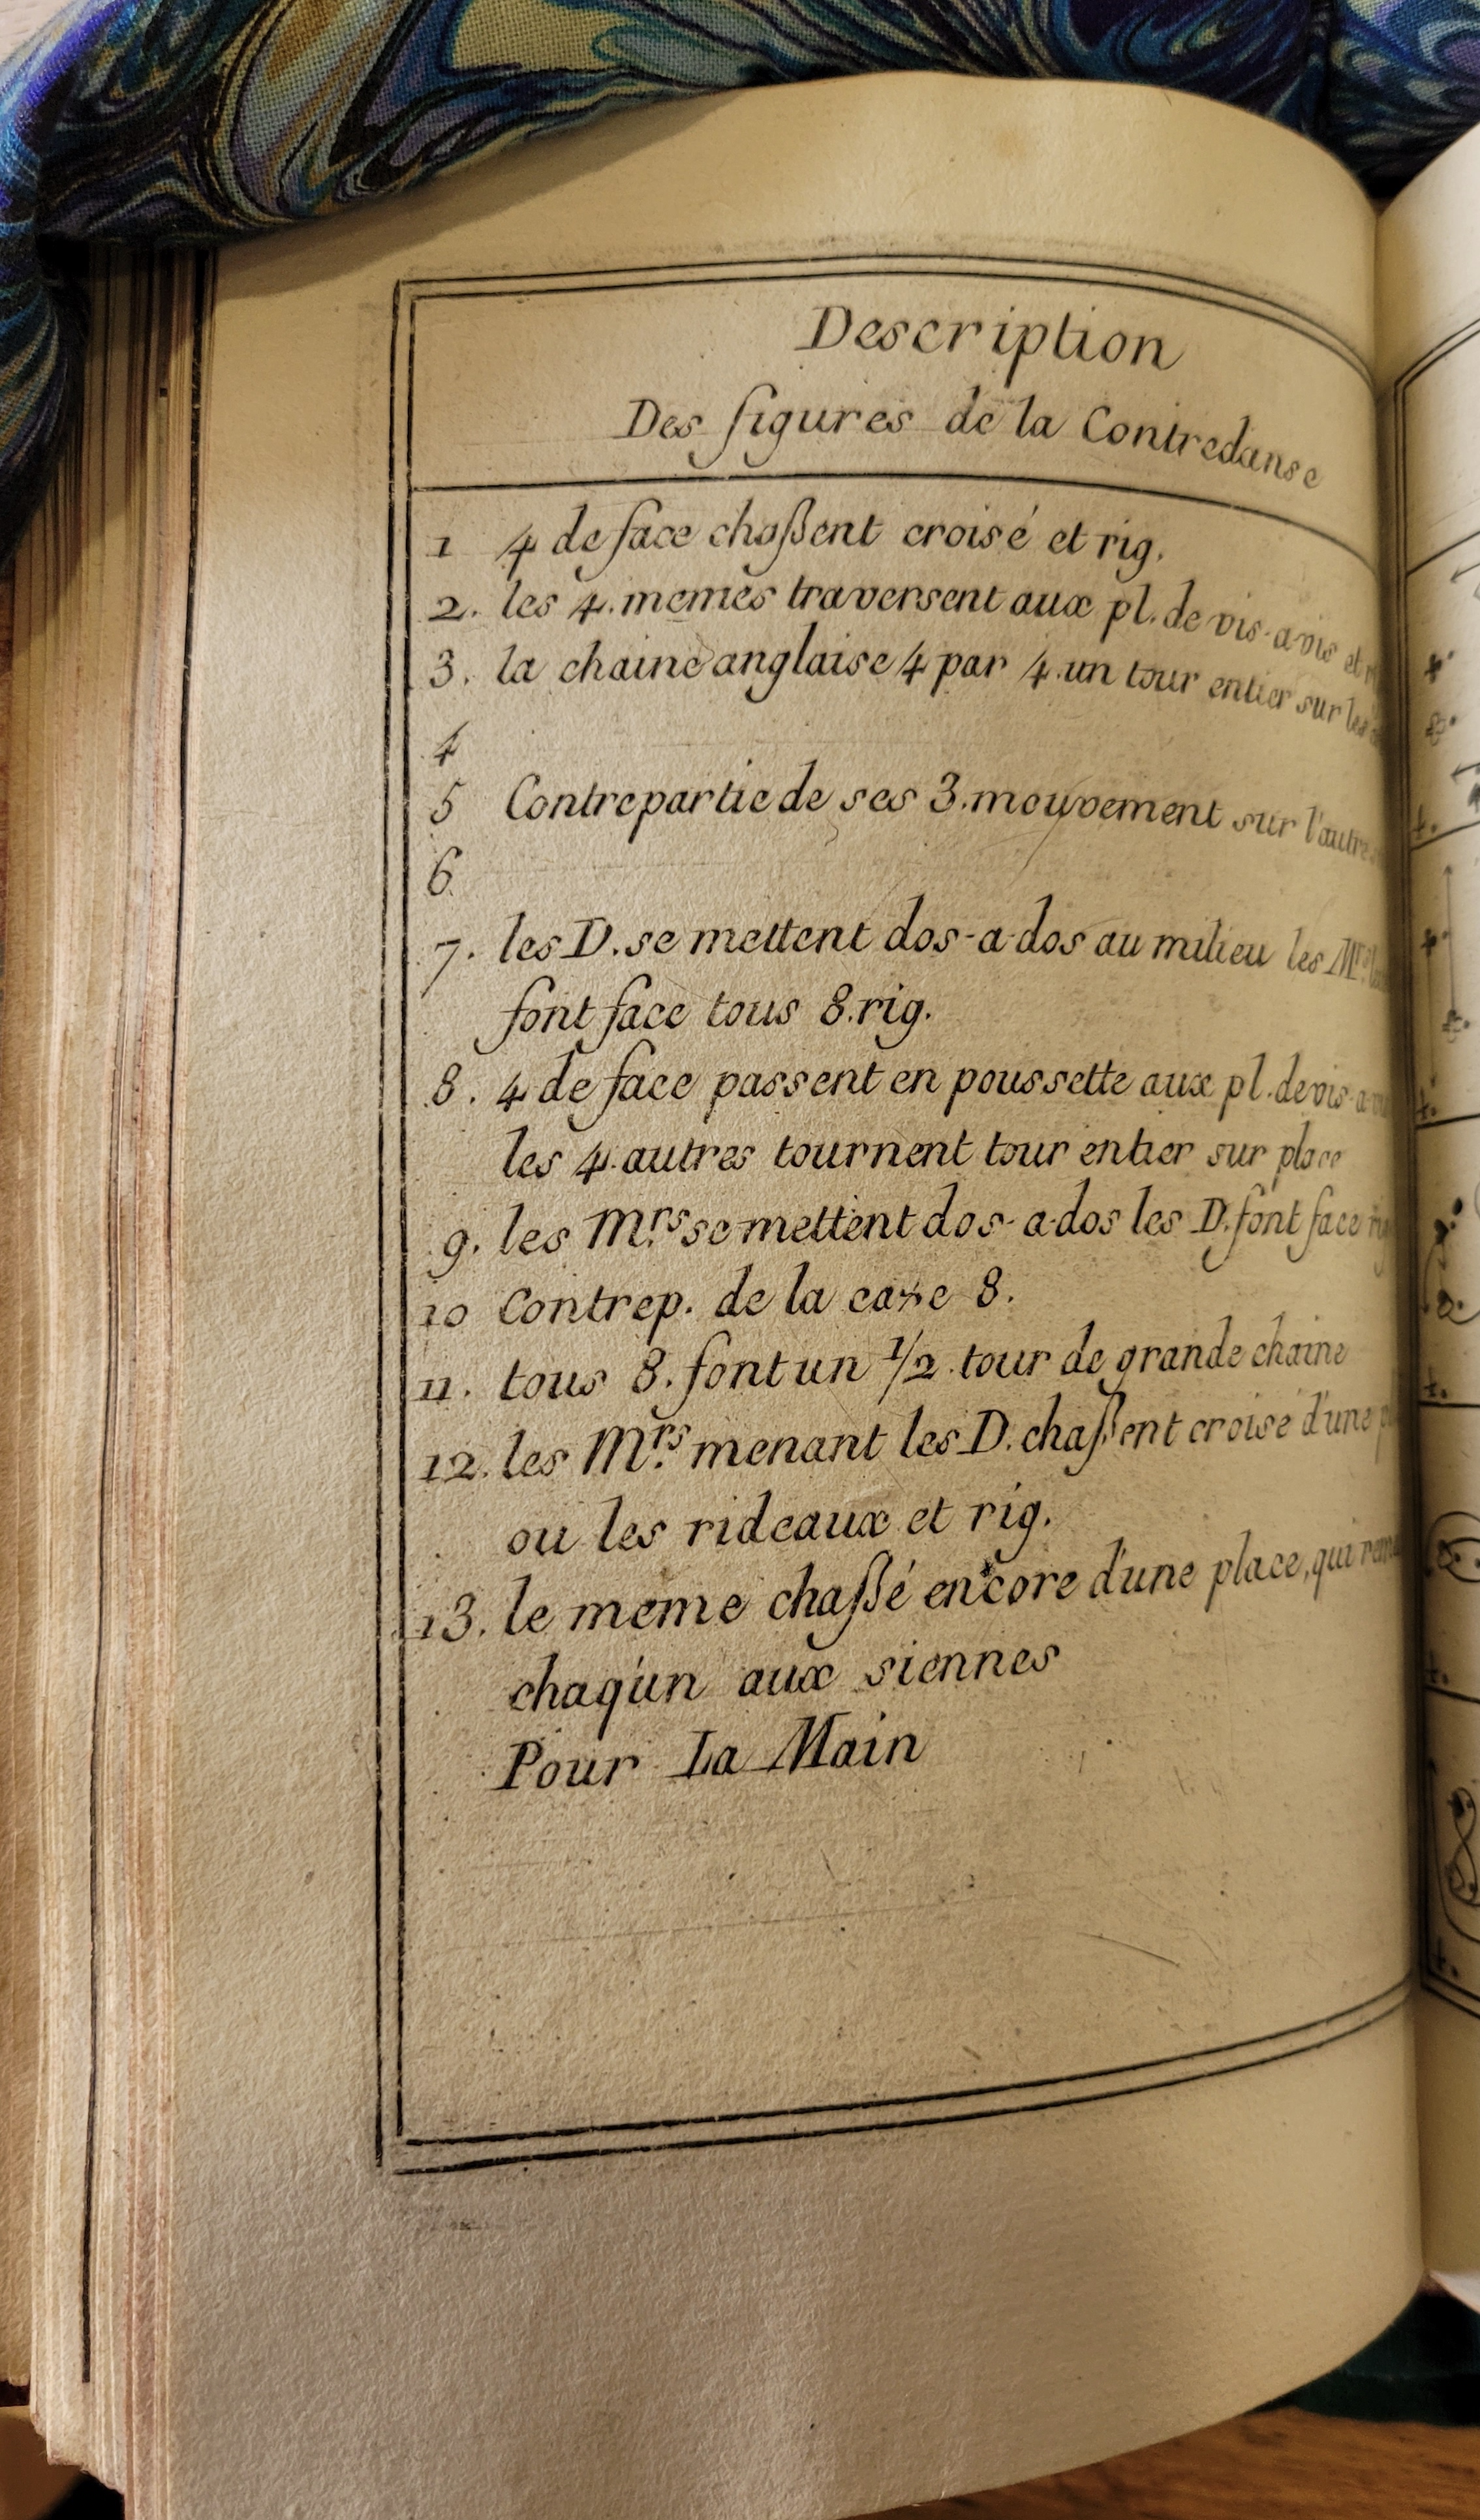 Description
Des figures de la Contredanse
1 4 de face chaßent croisé et rig.
2. les 4. memes traversent aux pl. de vis-avis et
3. la chaine anglaise 4 par 4. un tour entier sur les
4
5 Contrepartie de ses 3. mouvement sur l'autre
6.
7. les D. se mettent dos-a-dos au milieu les Mrs
font face tous 8. rig.
8. 4 de face passent en poussette aux pl. de vis-a-
les 4. autres tournent tour entier sur place
9. les Mrs se mettent dos-a-dos les D. font face
10 Contrep. de la case 8.
11. tous 8. font un 1/2 tour de grande chaine
12. les Mrs menant les D. chaßent croisé d'une
ou les rideaux et rig.
13. le meme chaßé encore d'une place, qui
chaq'un aux siennes
Pour La Main